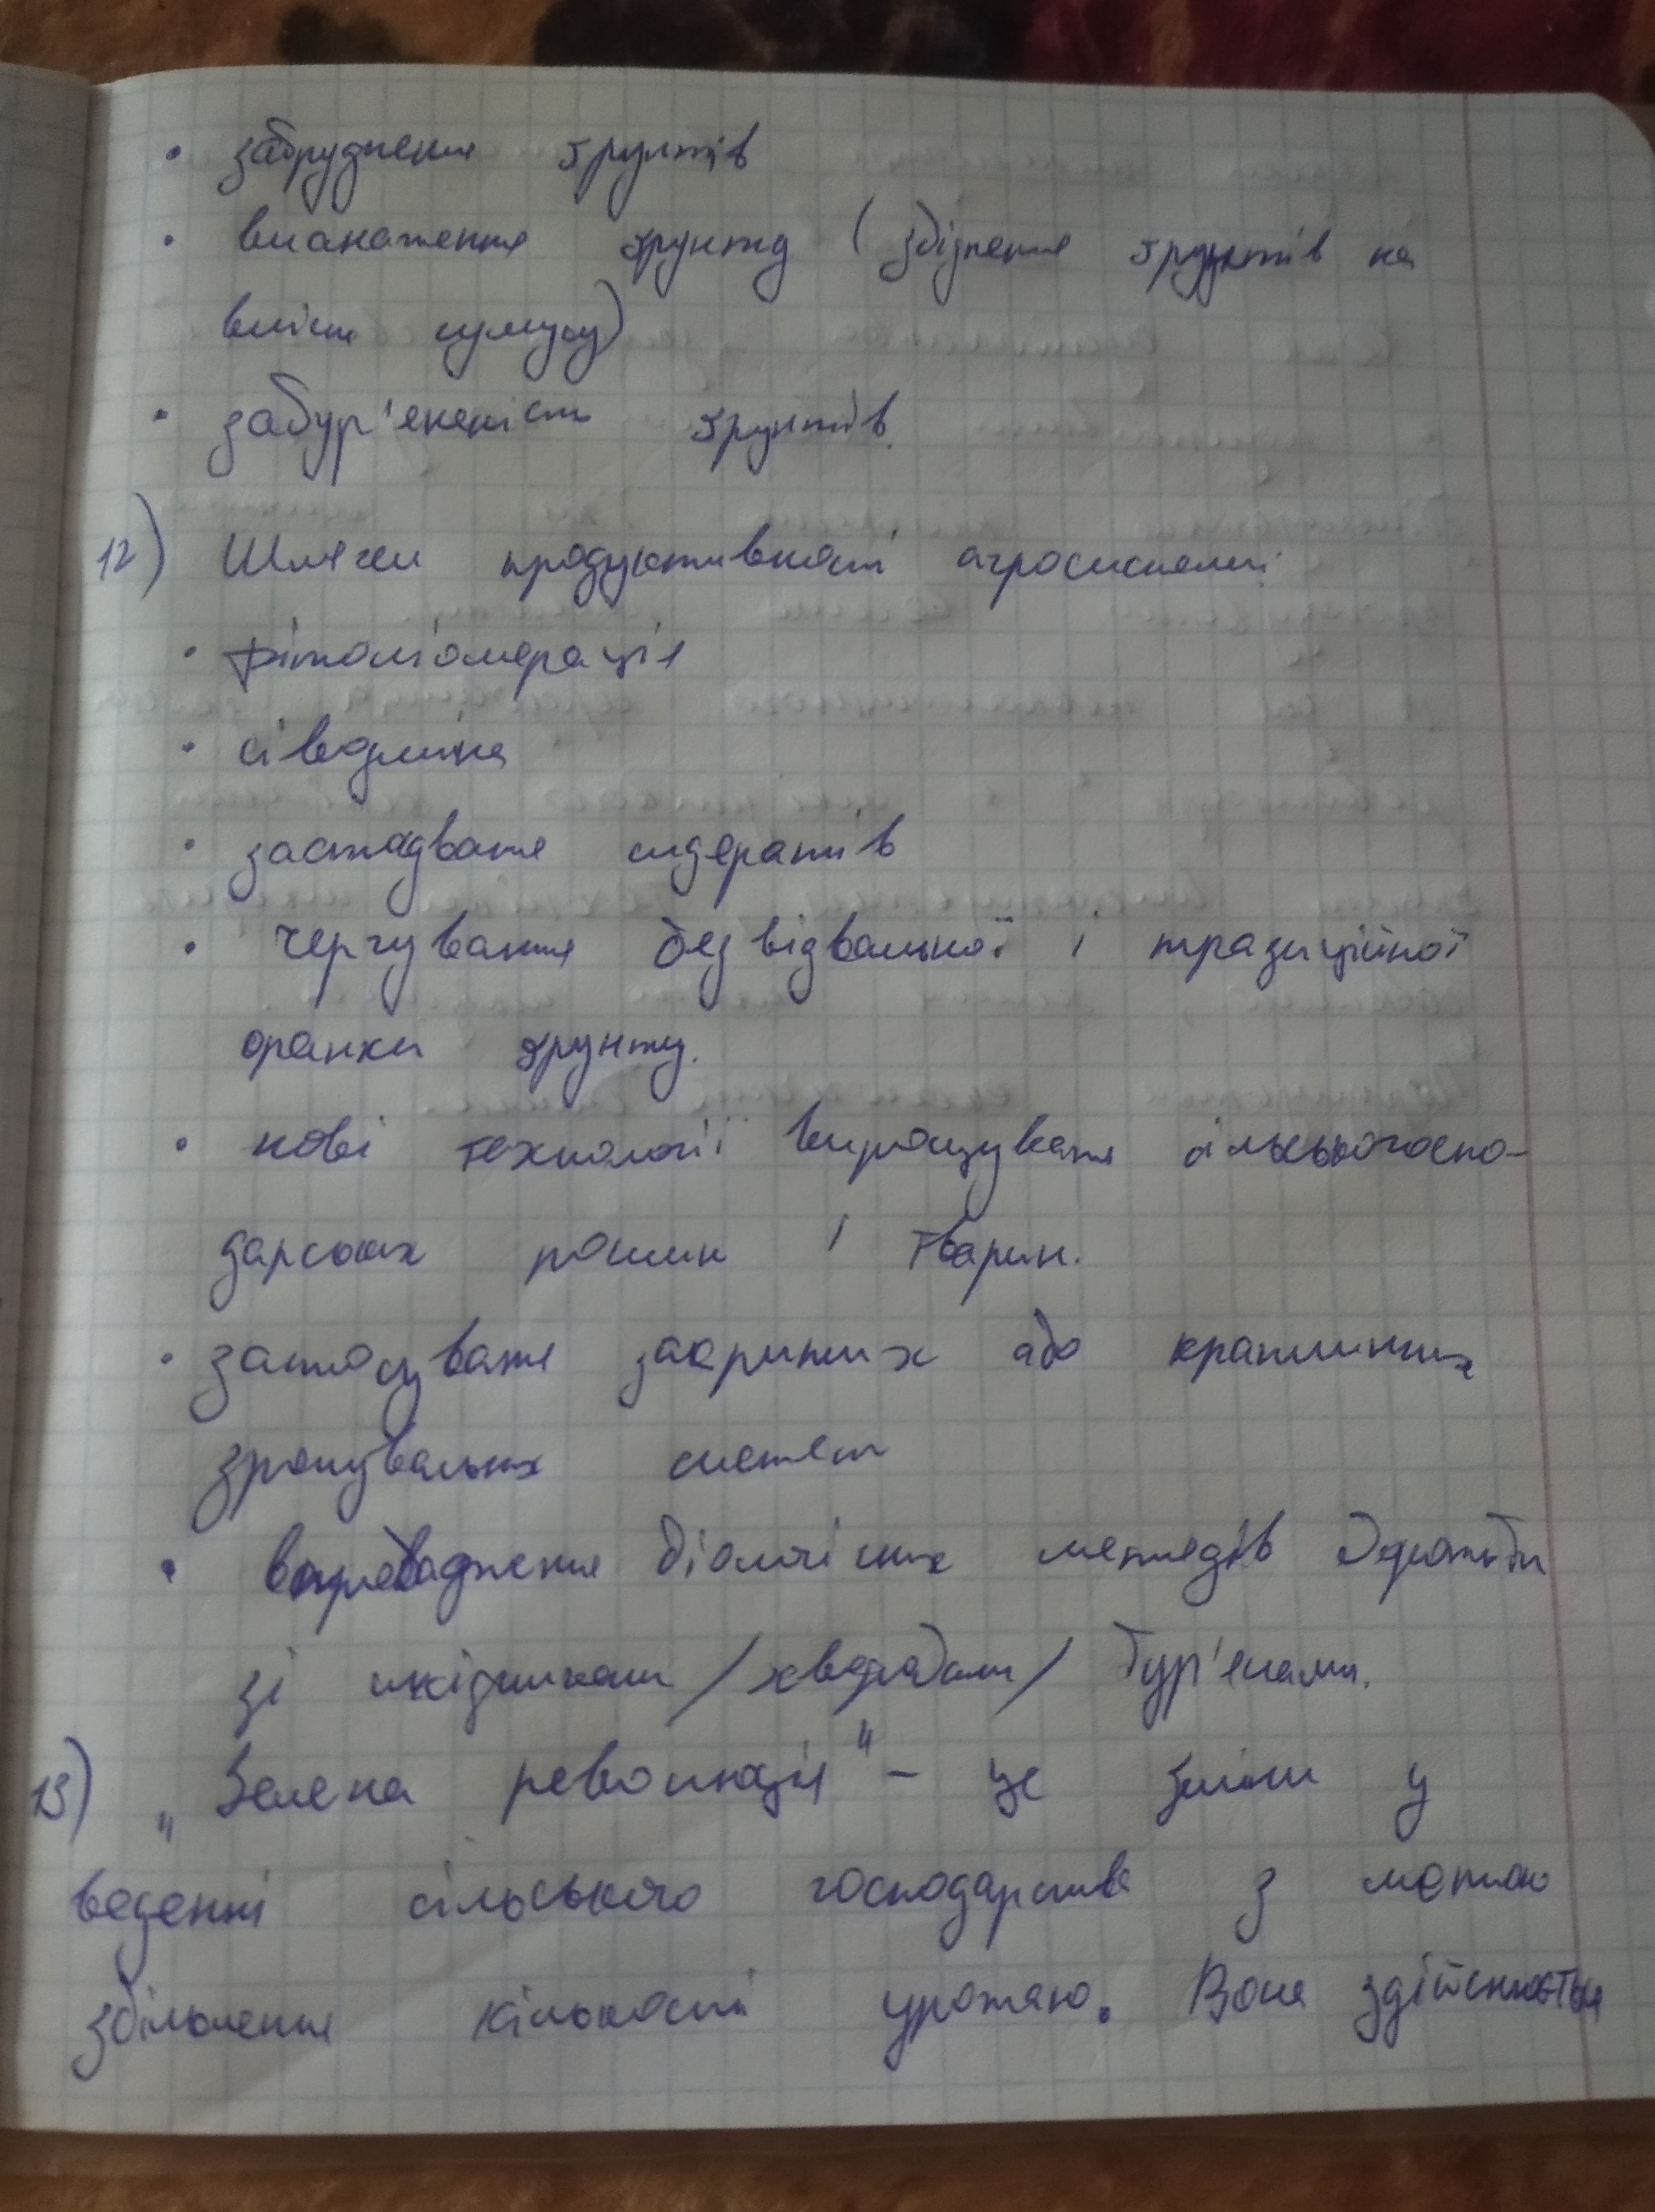 • забруднення ґрунтів
• виснаження ґрунту (збіднення ґрунтів на
вміст гумусу)
• забур'яненість ґрунтів.
12) Шляхи продуктивності агросистеми:
• фітомеліорація
• сівозміна
• застосування сидератів
• чергування безвідвальної і традиційної
оранки ґрунту.
• нові технології вирощування сільськогоспо-
дарських рослин і тварин.
• застосування закритих або краплинних
зрошувальних систем
• впровадження біологічних методів боротьби
зі шкідниками / хворобами / бур'янами.
13) „Зелена революція" – це зміни у
веденні сільського господарства з метою
збільшення кількості урожаю. Вона здійснюється